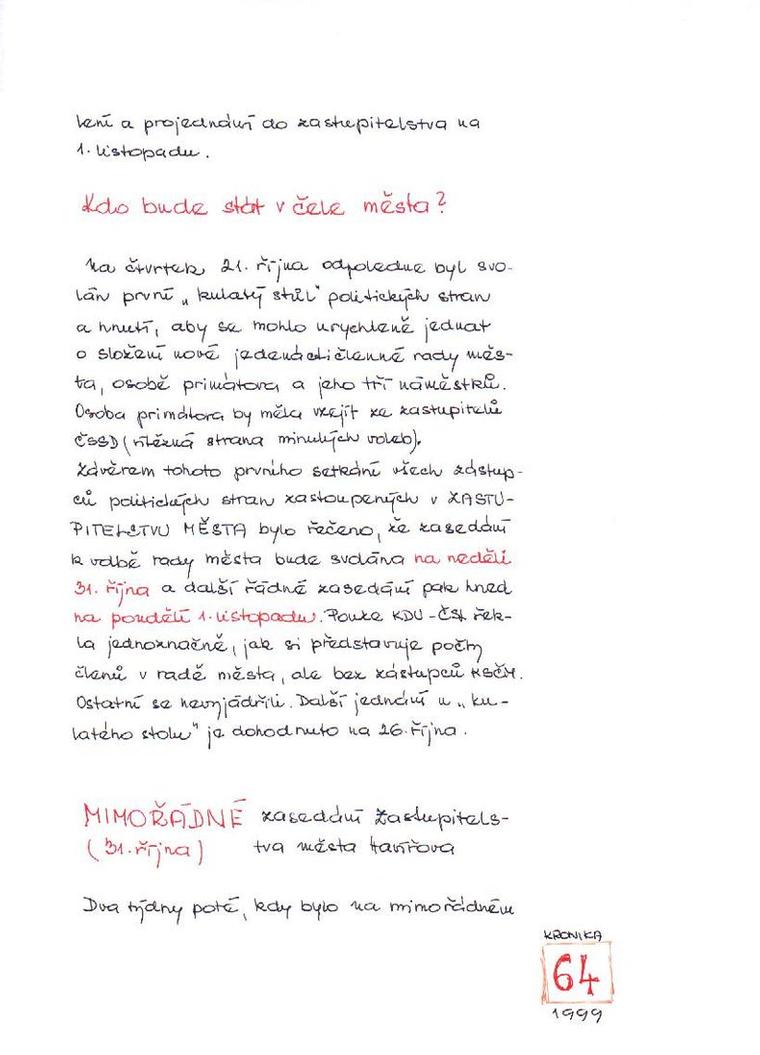 lení a projednání do zastupitelstva na
1. listopadu.
Kdo bude stát v čele města?
Na čtvrtek 21. října odpoledne byl svo-
lán první „kulatý stůl" politických stran
a hnutí, aby se mohlo urychleně jednat
o složení nové jedenáctičlenné rady měs-
ta, osobě primátora a jeho tří náměstků.
Osoba primátora by měla vzejít ze zastupitelů
ČSSD (vítězná strana minulých voleb).
Závěrem tohoto prvního setkání všech zástup-
ců politických stran zastoupených v ZASTU-
PITELSTVU MĚSTA bylo řečeno, že zasedání
k volbě rady města bude svolána na neděli
31. října a další řádné zasedání pak hned
na pondělí 1. listopadu. Pouze KDU-ČSL řek-
la jednoznačně, jak si představuje počty
členů v radě města, ale bez zástupců KSČM.
Ostatní se nevyjádřili. Další jednání u „ku-
latého stolu" je dohodnuto na 26. října.
MIMOŘÁDNÉ zasedání Zastupitels-
(31. října) tva města Havířova
Dva týdny poté, kdy bylo na mimořádném
KRONIKA
64
1999